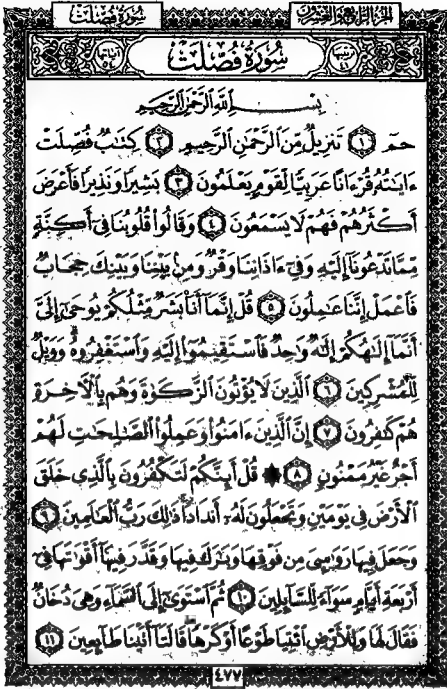 سُورَةُ فُصِّلَتْ
الجُزْءُ الرَّابِعُ وَالعِشْرُونَ
سُورَةُ فُصِّلَتْ
بِسْمِ ٱللَّهِ ٱلرَّحْمَٰنِ ٱلرَّحِيمِ
حمٓ ١ تَنزِيلٌ مِّنَ ٱلرَّحْمَٰنِ ٱلرَّحِيمِ ٢ كِتَٰبٌ فُصِّلَتْ
ءَايَٰتُهُۥ قُرْءَانًا عَرَبِيًّا لِّقَوْمٍ يَعْلَمُونَ ٣ بَشِيرًا وَنَذِيرًا فَأَعْرَضَ
أَكْثَرُهُمْ فَهُمْ لَا يَسْمَعُونَ ٤ وَقَالُوا۟ قُلُوبُنَا فِىٓ أَكِنَّةٍ
مِّمَّا تَدْعُونَآ إِلَيْهِ وَفِىٓ ءَاذَانِنَا وَقْرٌ وَمِنۢ بَيْنِنَا وَبَيْنِكَ حِجَابٌ
فَٱعْمَلْ إِنَّنَا عَٰمِلُونَ ٥ قُلْ إِنَّمَآ أَنَا۠ بَشَرٌ مِّثْلُكُمْ يُوحَىٰٓ إِلَىَّ
أَنَّمَآ إِلَٰهُكُمْ إِلَٰهٌ وَٰحِدٌ فَٱسْتَقِيمُوٓا۟ إِلَيْهِ وَٱسْتَغْفِرُوهُ وَوَيْلٌ
لِّلْمُشْرِكِينَ ٦ ٱلَّذِينَ لَا يُؤْتُونَ ٱلزَّكَوٰةَ وَهُم بِٱلْءَاخِرَةِ
هُمْ كَٰفِرُونَ ٧ إِنَّ ٱلَّذِينَ ءَامَنُوا۟ وَعَمِلُوا۟ ٱلصَّٰلِحَٰتِ لَهُمْ
أَجْرٌ غَيْرُ مَمْنُونٍ ٨ ۞ قُلْ أَئِنَّكُمْ لَتَكْفُرُونَ بِٱلَّذِى خَلَقَ
ٱلْأَرْضَ فِى يَوْمَيْنِ وَتَجْعَلُونَ لَهُۥٓ أَندَادًا ذَٰلِكَ رَبُّ ٱلْعَٰلَمِينَ ٩
وَجَعَلَ فِيهَا رَوَٰسِىَ مِن فَوْقِهَا وَبَٰرَكَ فِيهَا وَقَدَّرَ فِيهَآ أَقْوَٰتَهَا فِىٓ
أَرْبَعَةِ أَيَّامٍ سَوَآءً لِّلسَّآئِلِينَ ١٠ ثُمَّ ٱسْتَوَىٰٓ إِلَى ٱلسَّمَآءِ وَهِىَ دُخَانٌ
فَقَالَ لَهَا وَلِلْأَرْضِ ٱئْتِيَا طَوْعًا أَوْ كَرْهًا قَالَتَآ أَتَيْنَا طَآئِعِينَ ١١
٤٧٧